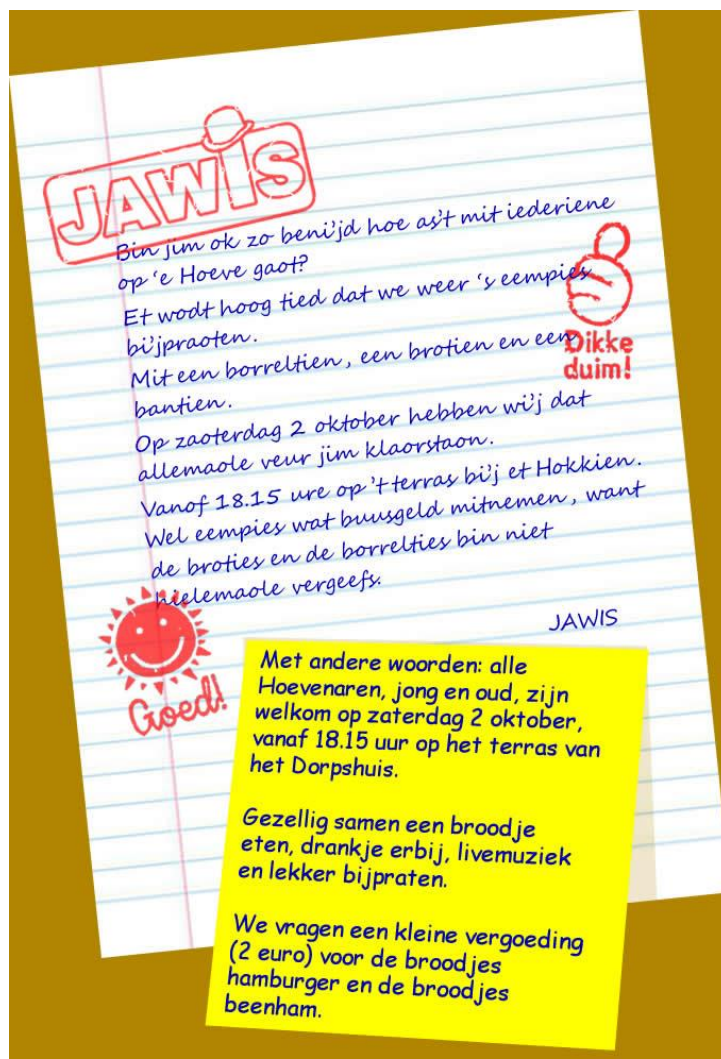 JAWIS
Bin jim ok zo beni'jd hoe as't mit iederiene
op 'e Hoeve gaot?
Et wodt hoog tied dat we weer 's eempies
bi'jpraoten.
Mit een borreltien, een brotien en een
bantien.
Dikke
duim!
Op zaoterdag 2 oktober hebben wi'j dat
allemaole veur jim klaorstaon.
Vanof 18.15 ure op 't terras bi'j et Hokkien.
Wel eempies wat buusgeld mitnemen, want
de broties en de borrelties bin niet
hielemaole vergeefs.
JAWIS
Goed!
Met andere woorden: alle
Hoevenaren, jong en oud, zijn
welkom op zaterdag 2 oktober,
vanaf 18.15 uur op het terras van
het Dorpshuis.
Gezellig samen een broodje
eten, drankje erbij, livemuziek
en lekker bijpraten.
We vragen een kleine vergoeding
(2 euro) voor de broodjes
hamburger en de broodjes
beenham.